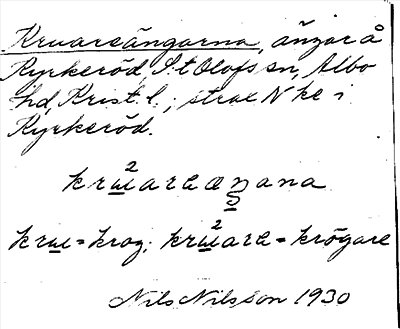 Kruareängarna, ängar å
Kyrkeröd, S:t Olofs sn, Albo
hd, Krist. l.; strax N ke i
Kyrkeröd.
krɯ²areæŋana
krɯ = krog; krɯ²are = krögare
Nils Nilsson 1930